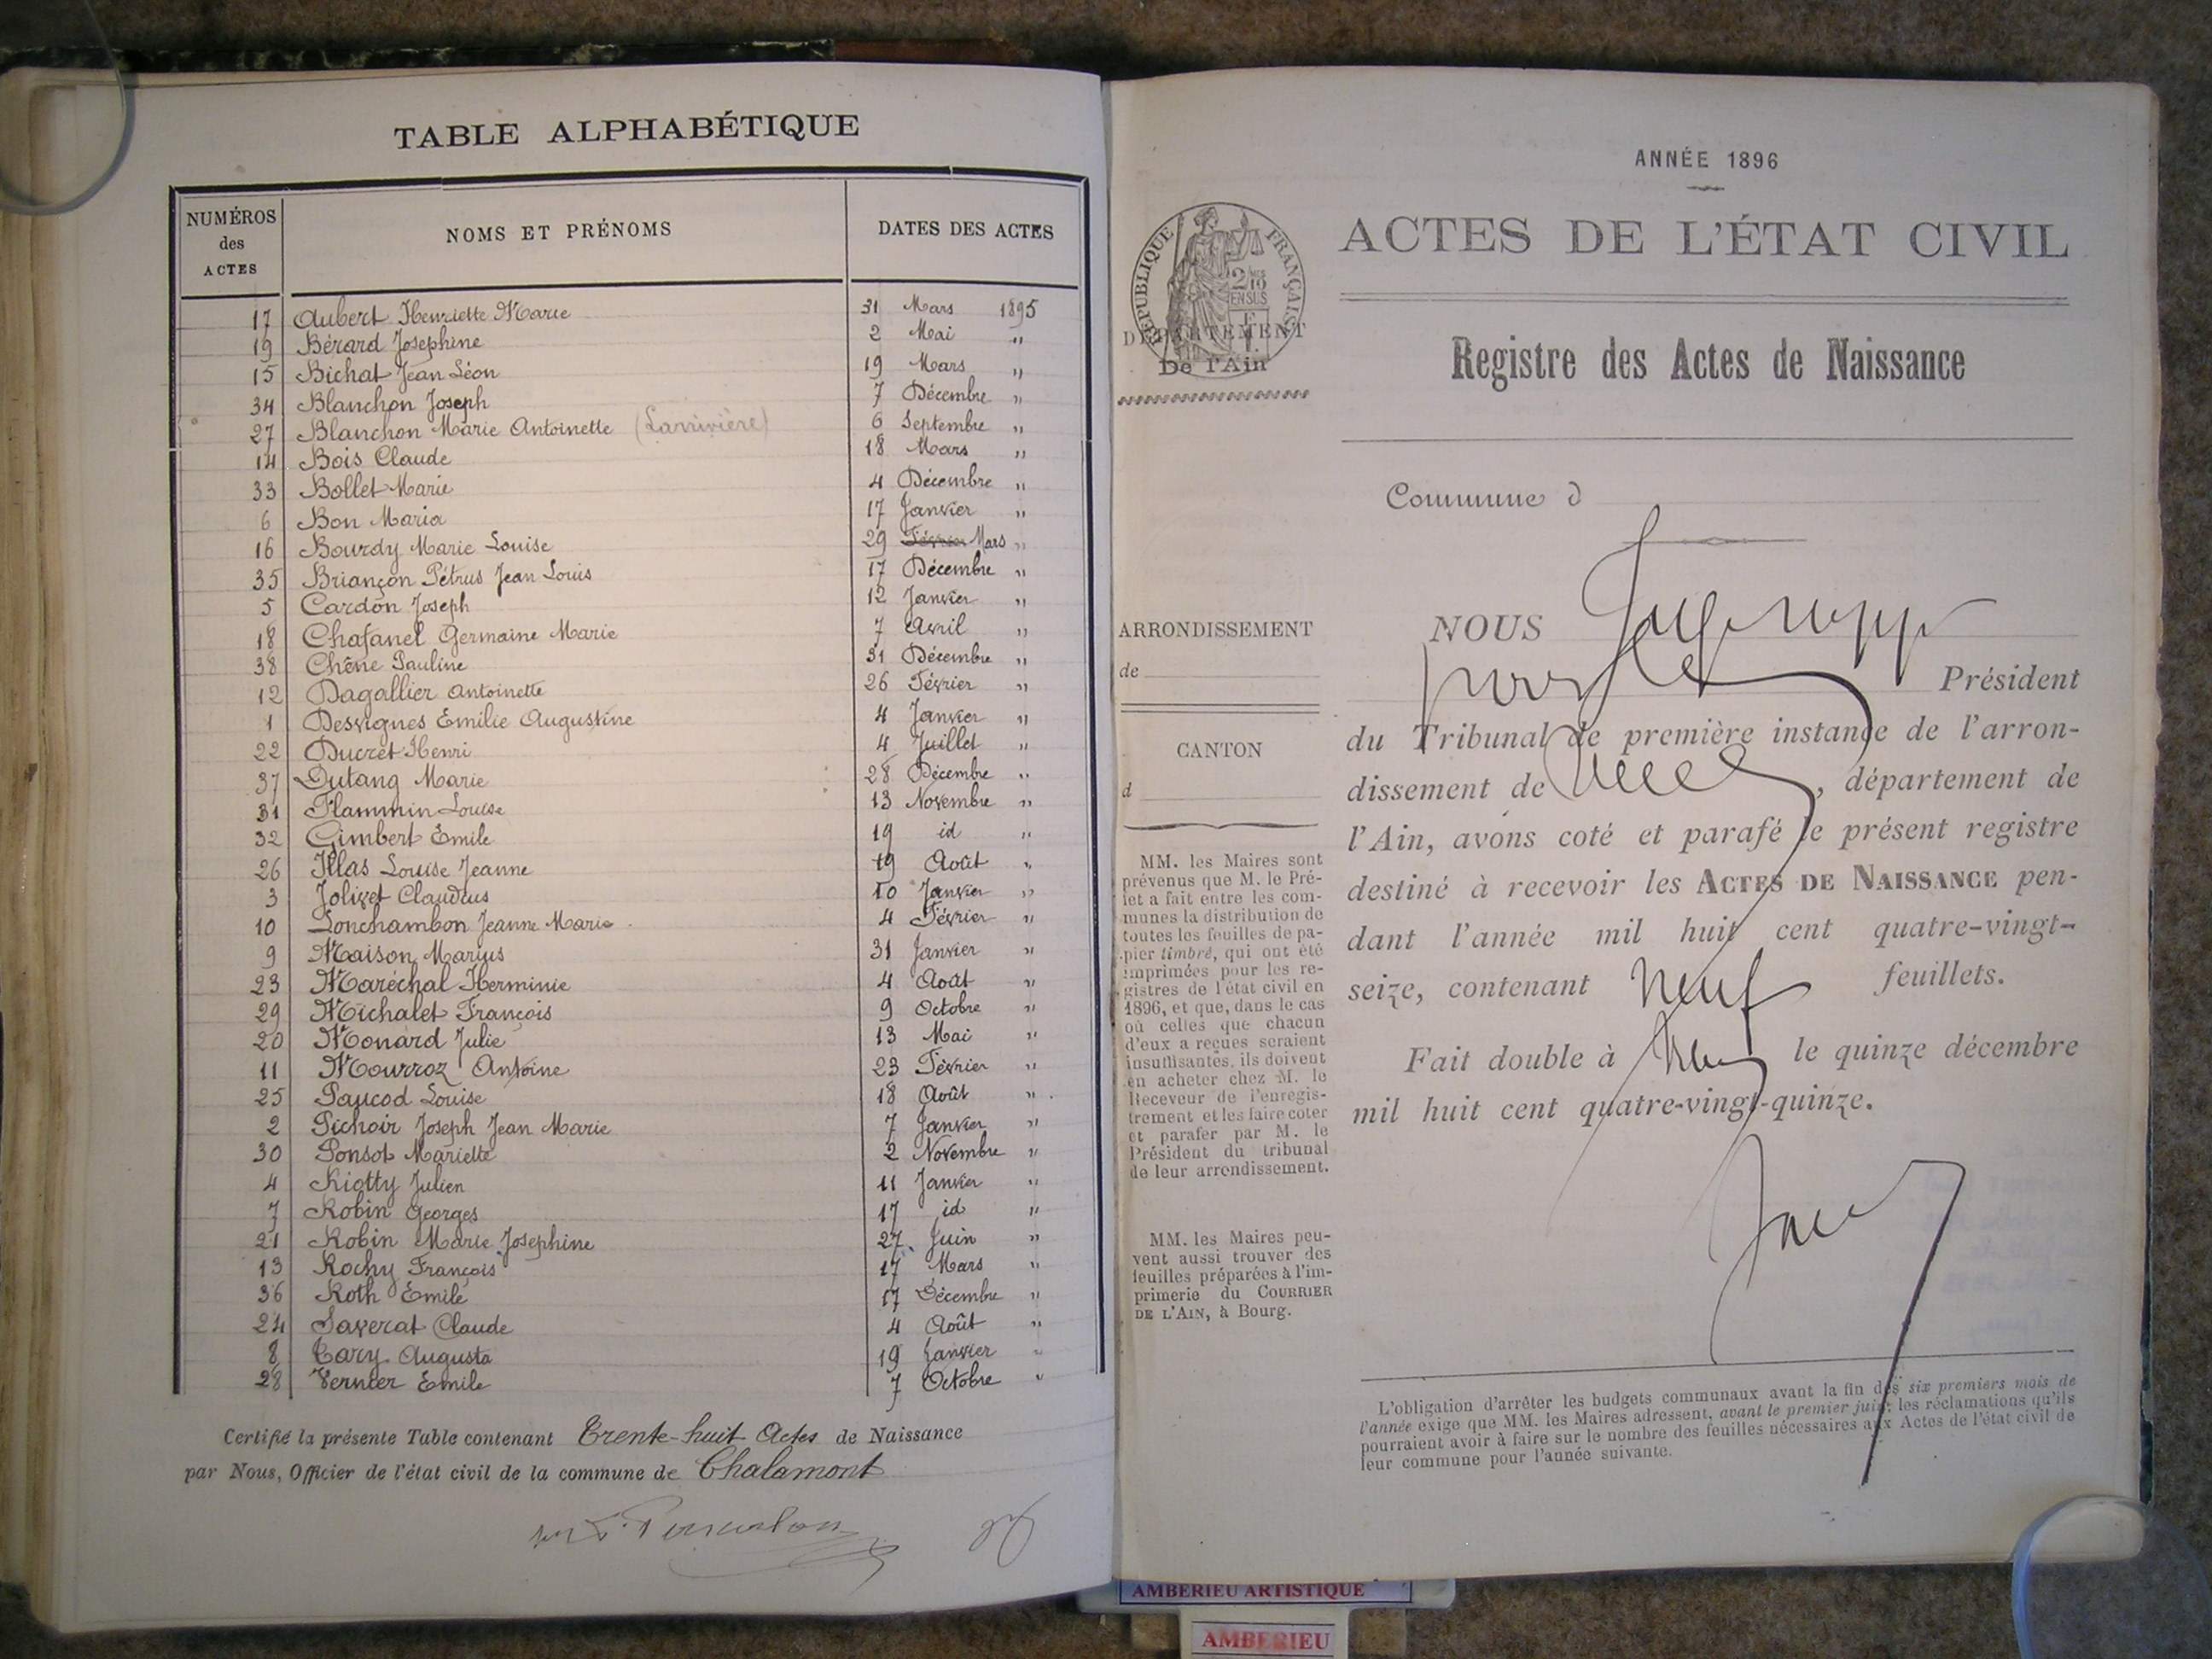 TABLE ALPHABÉTIQUE
NUMÉROS des ACTES NOMS ET PRÉNOMS DATES DES ACTES
17 Aubert Henriette Marie 31 Mars 1895
19 Bérard Josephine 2 Mai "
15 Bichat Jean Léon 19 Mars "
34 Blanchon Joseph 7 Décembre "
27 Blanchon Marie Antoinette (Larrivière) 6 Septembre "
14 Bois Claude 18 Mars "
33 Bollet Marie 4 Décembre "
6 Bon Maria 17 Janvier "
16 Bourdy Marie Louise 29 Février Mars "
35 Briançon Pétrus Jean Louis 17 Décembre "
5 Cardon Joseph 12 Janvier "
18 Chafanel Germaine Marie 7 Avril "
38 Chêne Pauline 31 Décembre "
12 Dagallier Antoinette 26 Février "
1 Desvignes Emilie Augustine 4 Janvier "
22 Ducret Henri 4 Juillet "
37 Dutang Marie 28 Décembre "
31 Flammin Louise 13 Novembre "
32 Gimbert Emile 19 id "
26 Illas Louise Jeanne 19 Août "
3 Jolivet Claudius 10 Janvier "
10 Lonchambon Jeanne Marie 4 Février "
9 Maison Marius 31 Janvier "
23 Maréchal Herminie 4 Août "
29 Michalet François 9 Octobre "
20 Monard Julie 13 Mai "
11 Mourroz Antoine 23 Février "
25 Paucod Louise 18 Août "
2 Pichoir Joseph Jean Marie 7 Janvier "
30 Ponsot Mariette 2 Novembre "
4 Riotty Julien 11 Janvier "
7 Robin Georges 17 id "
21 Robin Marie Josephine 27 Juin "
13 Rochy François 17 Mars "
36 Roth Emile 17 Décembre "
24 Saverat Claude 4 Août "
8 Tary Augusta 19 Janvier "
28 Vernier Emile 7 Octobre "
Certifié la présente Table contenant Trente-huit Actes de Naissance
par Nous, Officier de l'état civil de la commune de Chalamont
ANNÉE 1896
ACTES DE L'ÉTAT CIVIL
RÉPUBLIQUE FRANÇAISE
2/10
EN SUS
DÉPARTEMENT
De l'Ain
Registre des Actes de Naissance
Commune d
ARRONDISSEMENT
de
CANTON
d
MM. les Maires sont
prévenus que M. le Pré-
fet a fait entre les com-
munes la distribution de
toutes les feuilles de pa-
pier timbré, qui ont été
imprimées pour les re-
gistres de l'état civil en
1896, et que, dans le cas
où celles que chacun
d'eux a reçues seraient
insuffisantes, ils doivent
en acheter chez M. le
Receveur de l'enregis-
trement et les faire coter
et parafer par M. le
Président du tribunal
de leur arrondissement.
MM. les Maires peu-
vent aussi trouver des
feuilles préparées à l'im-
primerie du COURRIER
DE L'AIN, à Bourg.
NOUS
Président
du Tribunal de première instance de l'arron-
dissement de , département de
l'Ain, avons coté et parafé le présent registre
destiné à recevoir les ACTES DE NAISSANCE pen-
dant l'année mil huit cent quatre-vingt-
seize, contenant Neuf feuillets.
Fait double à le quinze décembre
mil huit cent quatre-vingt-quinze.
L'obligation d'arrêter les budgets communaux avant la fin des six premiers mois de
l'année exige que MM. les Maires adressent, avant le premier juin, les réclamations qu'ils
pourraient avoir à faire sur le nombre des feuilles nécessaires aux Actes de l'état civil de
leur commune pour l'année suivante.
AMBERIEU ARTISTIQUE
AMBERIEU